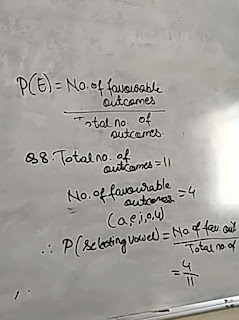 P(E) = No. of favourable
outcomes
Total no. of
outcomes.
Q8: Total no. of
outcomes = 11
No. of favourable
outcomes = 4
(a,e,i,o,u)
∴ P(selecting vowel) = No. of fav. out
Total no. of
= 4
11